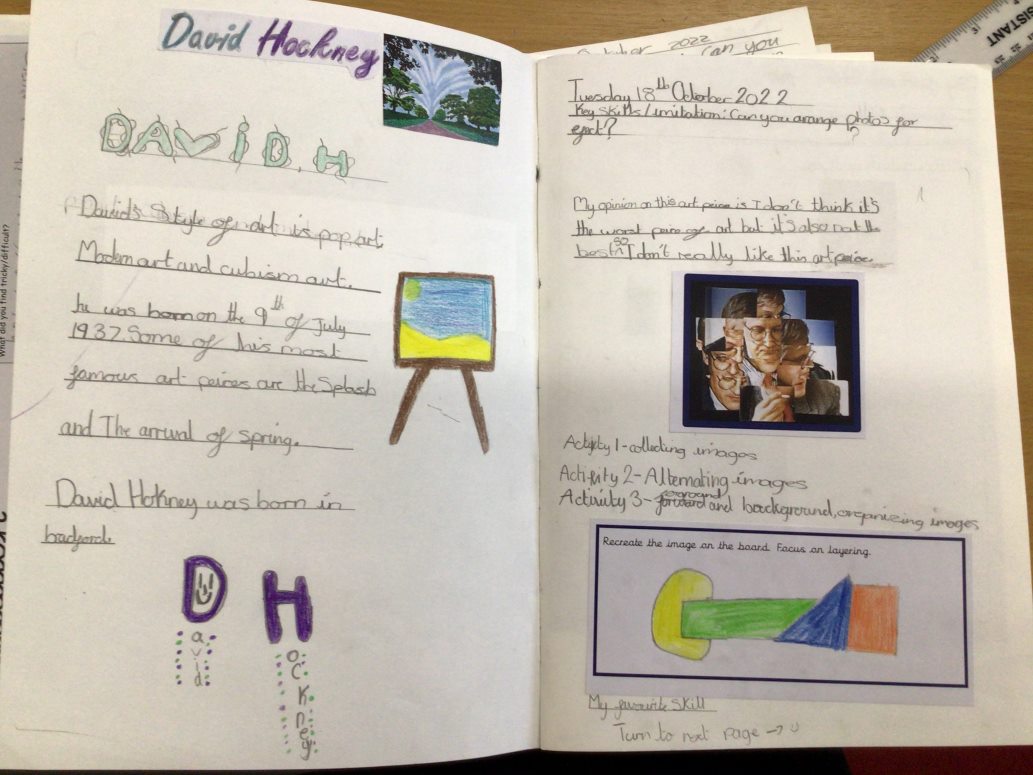 David Hockney
DAViD.H
David's Style of art is pop art
Modern art and cubism art.
he was born on the 9th of July
1937. Some of his most
famous art peices are the Splash
and The arrival of spring.
David Hokney was born in
bradford.
D H
avid
ockney
What did you find tricky/difficult?
2022
can you
ISISTANT
Tuesday 18th October 2022
Key skills/imitation: Can you arange photos for
efect?
My opinion on this art peice is I don't think it's
the worst peice of art but it's also not the
best so I don't really like this art peice.
Activity 1-collecting images
Activity 2-Alternating images
Activity 3- foreground and background, organizing images
Recreate the image on the board. Focus on layering.
My favourite Skill
Turn to next page →